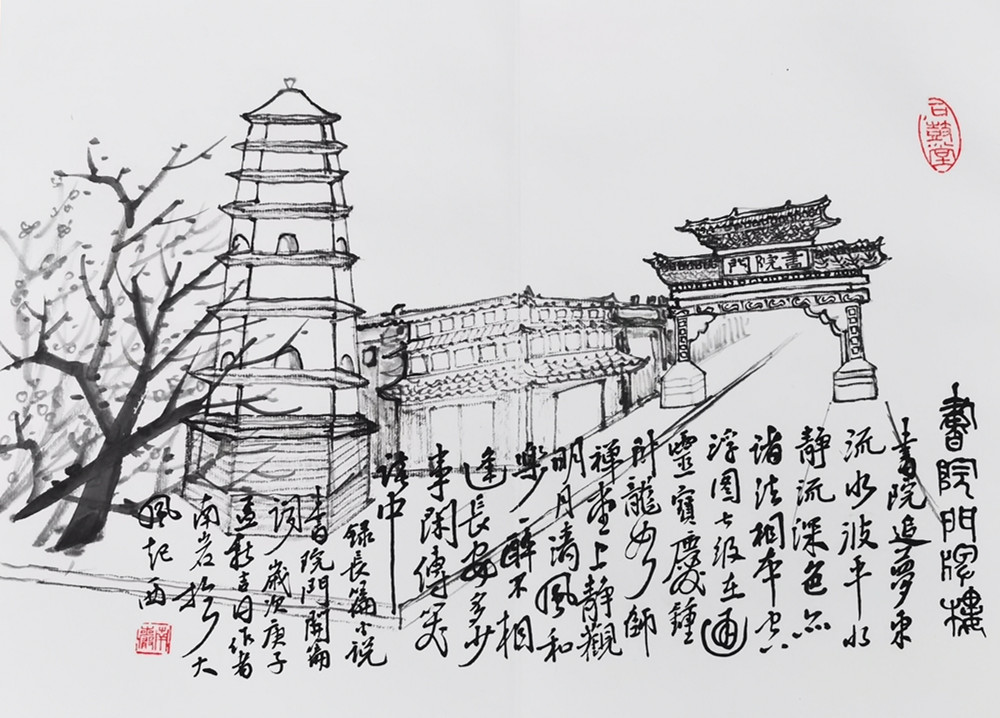 石鼓堂
書院門
書院門牌樓
書院追夢東
流水波平水
静流深色
诸法相本空
浮图七级在通
靈寶慶鐘
龍師
禅堂上静觀
明月清風和
樂一醉不相
逢長安多少
事閑傳笑
語中
録長篇小説
書院門開篇
词歲次庚子
孟秋吉日作者
南岩於大
風起西